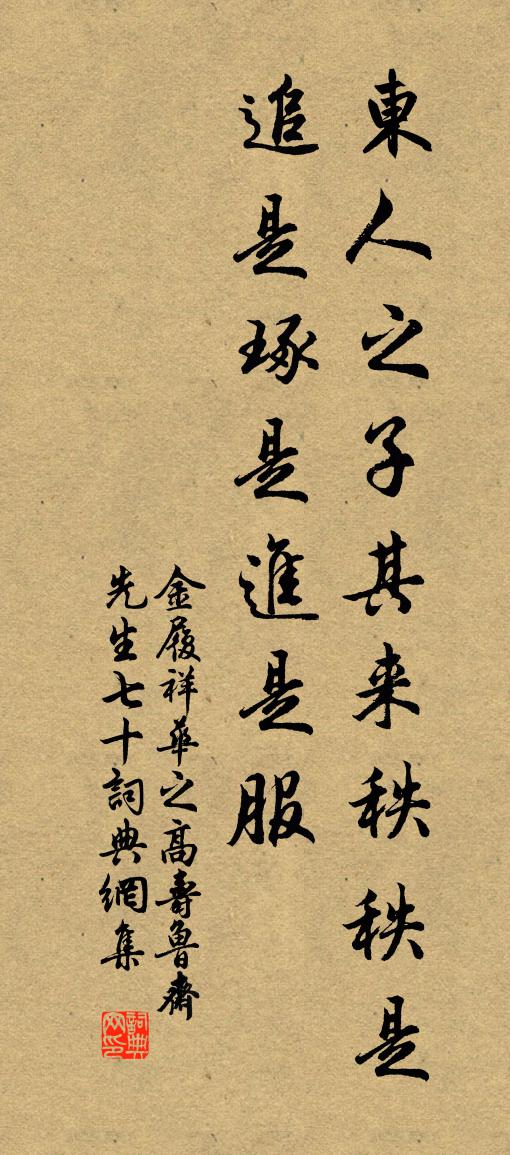 東人之子其来秩秩是
追是琢是進是服
金履祥華之高壽魯齋
先生七十詞典網集
詞典
网印